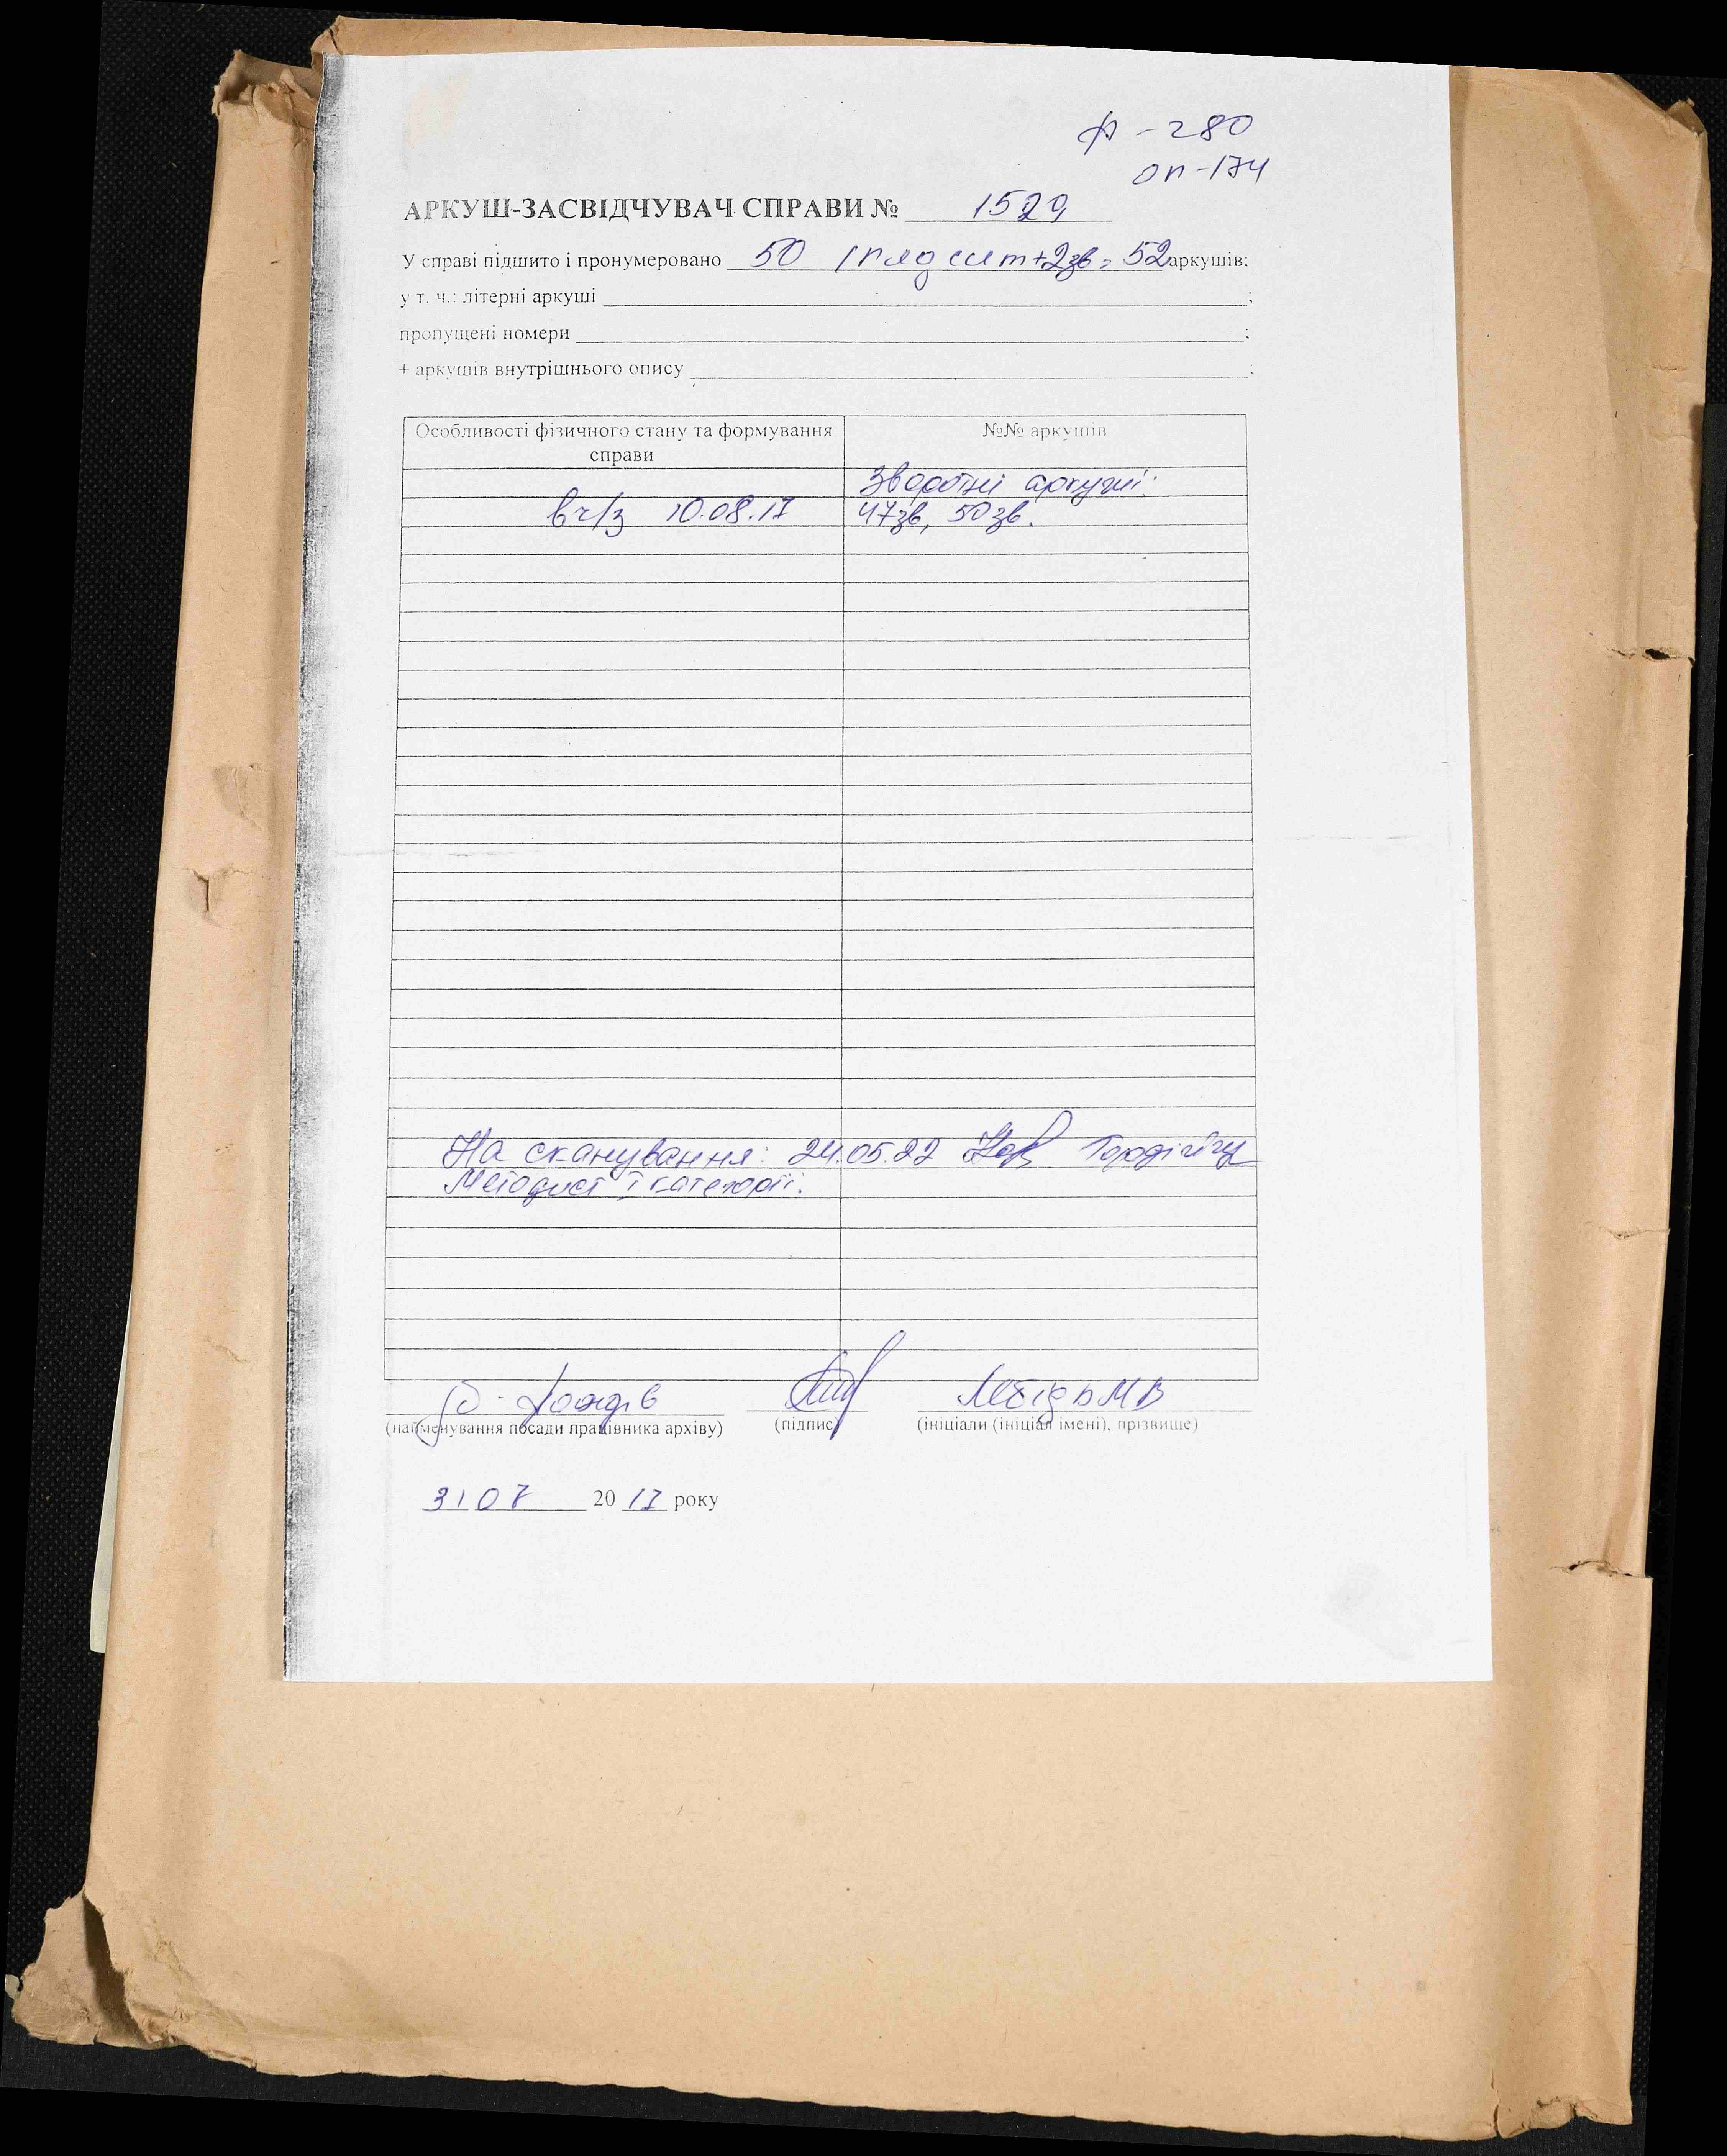 ф - 280
оп - 174
АРКУШ-ЗАСВІДЧУВАЧ СПРАВИ № 1529
У справі підшито і пронумеровано 50 /пядсят+2зв = 52 аркушів;
у т. ч.: літерні аркуші ;
пропущені номери ;
+ аркушів внутрішнього опису ;
Особливості фізичного стану та формування справи
№№ аркушів
Зворотні аркуші:
вч/з 10.08.17 47зв, 50зв.
На сканування: 24.05.22
Методист І категорії.
фондів Лебідь М В
(найменування посади працівника архіву) (підпис) (ініціали (ініціал імені), прізвище)
31 07 20 17 року